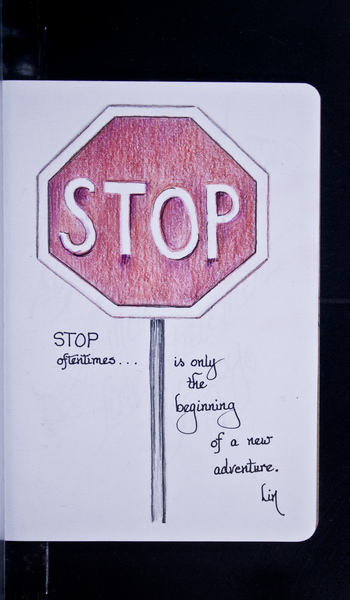 STOP
STOP
oftentimes...
is only
the
beginning
of a new
adventure.
Lin